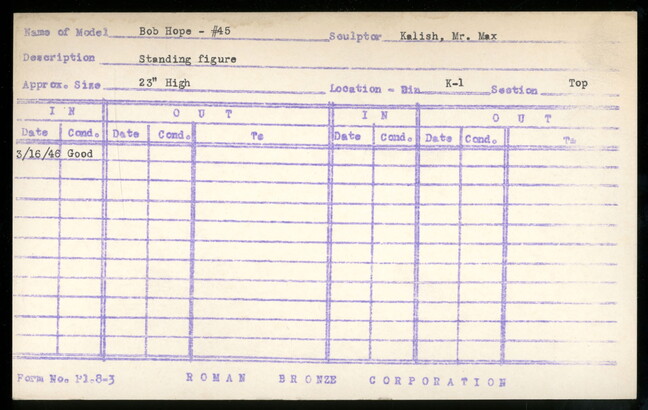 Name of Model Bob Hope - #45 Sculptor Kalish, Mr. Max
Description Standing figure
Approx. Size 23" High Location - Bin K-1 Section Top
IN OUT IN OUT
Date Cond. Date Cond. To Date Cond. Date Cond. To
3/16/46 Good
Form No. M1-8-3 ROMAN BRONZE CORPORATION